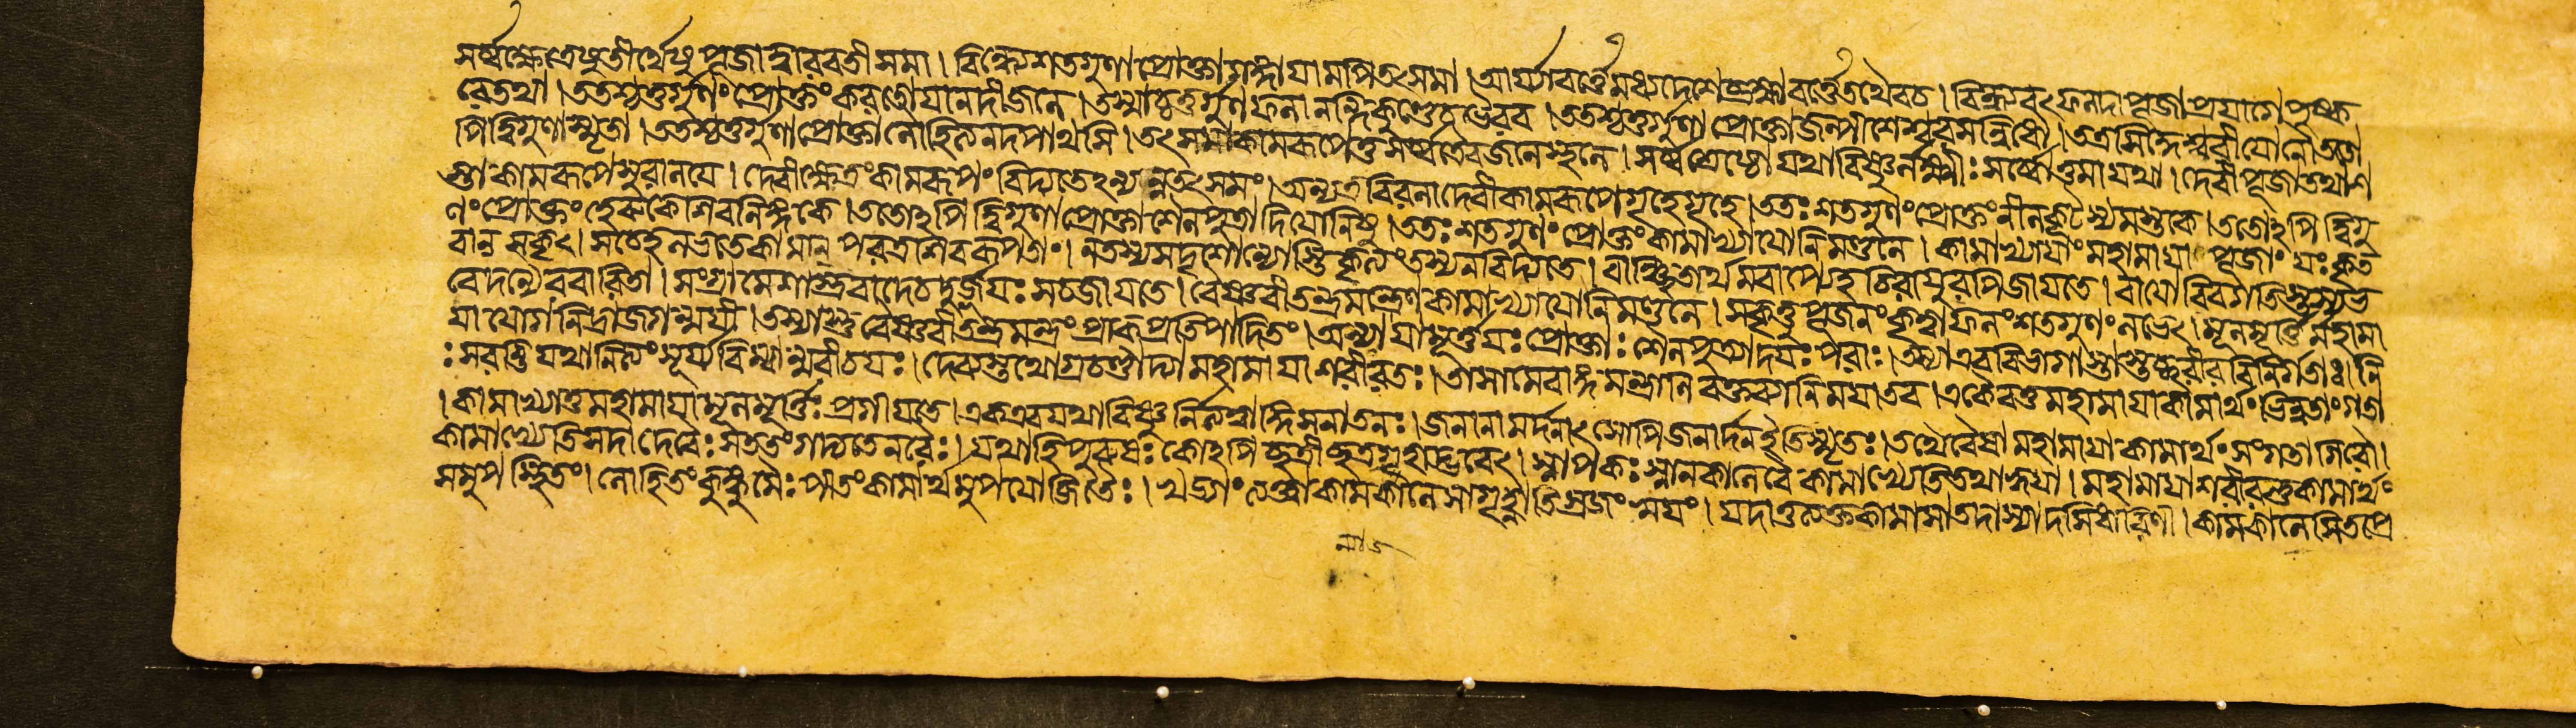 সর্ব্বক্ষেত্রেষু তীর্থেষু পূজা দ্বারবতী সমা । বিন্ধ্যে শতগুণা প্রোক্তা গঙ্গায়ামপি তৎসমা । আর্য্যাবর্ত্তে মধ্যদেশে ব্রহ্মাবর্ত্তে তথৈব চ । বিন্ধ্যবৎ ফলদা পূজা প্রয়াগে পুষ্ক
রে তথা । ততশ্চতুর্গুণং প্রোক্তং করতোয়ানদীজলে । তস্মাচ্চতুর্গুণফলা নন্দিকুণ্ডে চ ভৈরব । ততশ্চতুর্গুণা প্রোক্তা জল্পীশেশ্বরসন্নিধৌ । তত্র সিদ্ধেশ্বরীযোনৌ ততো
পি দ্বিগুণা স্মৃতা । ততশ্চতুর্গুণা প্রোক্তা লৌহিত্যনদপাথসি । তৎসমা কামরূপে তু সর্ব্বত্রৈব জলে স্থলে । সর্ব্বশ্রেষ্ঠো যথা বিষ্ণুর্লক্ষ্মীঃ সর্ব্বোত্তমা যথা । দেবীপূজা তথা শ
স্তা কামরূপে সুরালয়ে । দেবীক্ষেত্রং কামরূপং বিদ্যতেঽন্যন্ন তৎসমং । অন্যত্র বিরলা দেবী কামরূপে গৃহে গৃহে । ততঃ শতগুণং প্রোক্তং নীলকূটস্য মস্তকে । ততোঽপি দ্বিগু
ণং প্রোক্তং হেরুকে শিবলিঙ্গকে । ততোঽপি দ্বিগুণা প্রোক্তা শৈলপুত্র্যাদিযোনিষু । ততঃ শতগুণং প্রোক্তং কামাখ্যাযোনিমণ্ডলে । কামাখ্যায়াং মহামায়া পূজাং যঃ কৃত
বান্ সকৃৎ । স চেহ লভতে কামান্ পরত্র শিবরূপতাং । ন তস্য সদৃশোন্যোস্তি কৃত্যং তস্য ন বিদ্যতে । বাঞ্ছিতার্থমবাপ্যেহ চিরায়ুরপি জায়তে । বায়োরিব গতিস্তস্য ভ
বেদন্যৈরবারিতা । সংগ্রামে শাস্ত্রবাদে চ দুর্জ্জয়ঃ স চ জায়তে । বৈষ্ণবীতন্ত্রমন্ত্রেণ কামাখ্যাযোনিমণ্ডলে । সকৃত্তু পূজনং কৃত্বা ফলং শতগুণং লভেৎ । মূলমূর্ত্তির্মহামা
যা যোগনিদ্রা জগন্ময়ী । তস্যাস্তু বৈষ্ণবীতন্ত্রমন্ত্রং প্রাক্ প্রতিপাদিতং । অস্যা যা মূর্ত্তয়ঃ প্রোক্তাঃ শৈলপুত্র্যাদয়ঃ পরাঃ । তস্যা এব বিভাগাস্তাস্তচ্ছরীরবিনির্গতাঃ । নি
ঃসরন্তি যথা নিত্যং সূর্য্যবিম্বান্মরীচয়ঃ । দেব্যস্তথোগ্রচণ্ডাদ্যা মহামায়াশরীরতঃ । তাসামেবাঙ্গমন্ত্রানি বক্তব্যানি ময়া তব । একৈব তু মহামায়া কামার্থং ভিন্নতাং গতা
। কামাখ্যা তু মহামায়া মূলমূর্ত্তিঃ প্রগীয়তে । এক এব যথা বিষ্ণুর্নিত্যত্বাদ্ধি সনাতনঃ । জনানামর্দনাৎ সোপি জনার্দন ইতি স্মৃতঃ । তথৈবৈষা মহামায়া কামার্থং সংগতা গিরৌ ।
কামাখ্যেতি সদা দেবৈঃ সততং গদ্যতে নরৈঃ । যথা হি পুরুষঃ কোঽপি ছত্রী ছত্রগ্রহাদ্ভবেৎ । স্নাপকঃ স্নানকালে বৈ কামাখ্যেতি তথাহ্বয়া । মহামায়াশরীরন্তু কামার্থং
সমুপস্থিতং । লৌহিতং কুঙ্কুমৈঃ পীতং কামার্থমুপযোজিতৈঃ । খড্গং ত্যক্ত্বা কামকালে সা গৃহ্ণাতি স্রজং স্বয়ং । যদা তু ত্যক্তকামা সা তদা স্যাদসিধারিণী । কামকালে সিতপ্রে